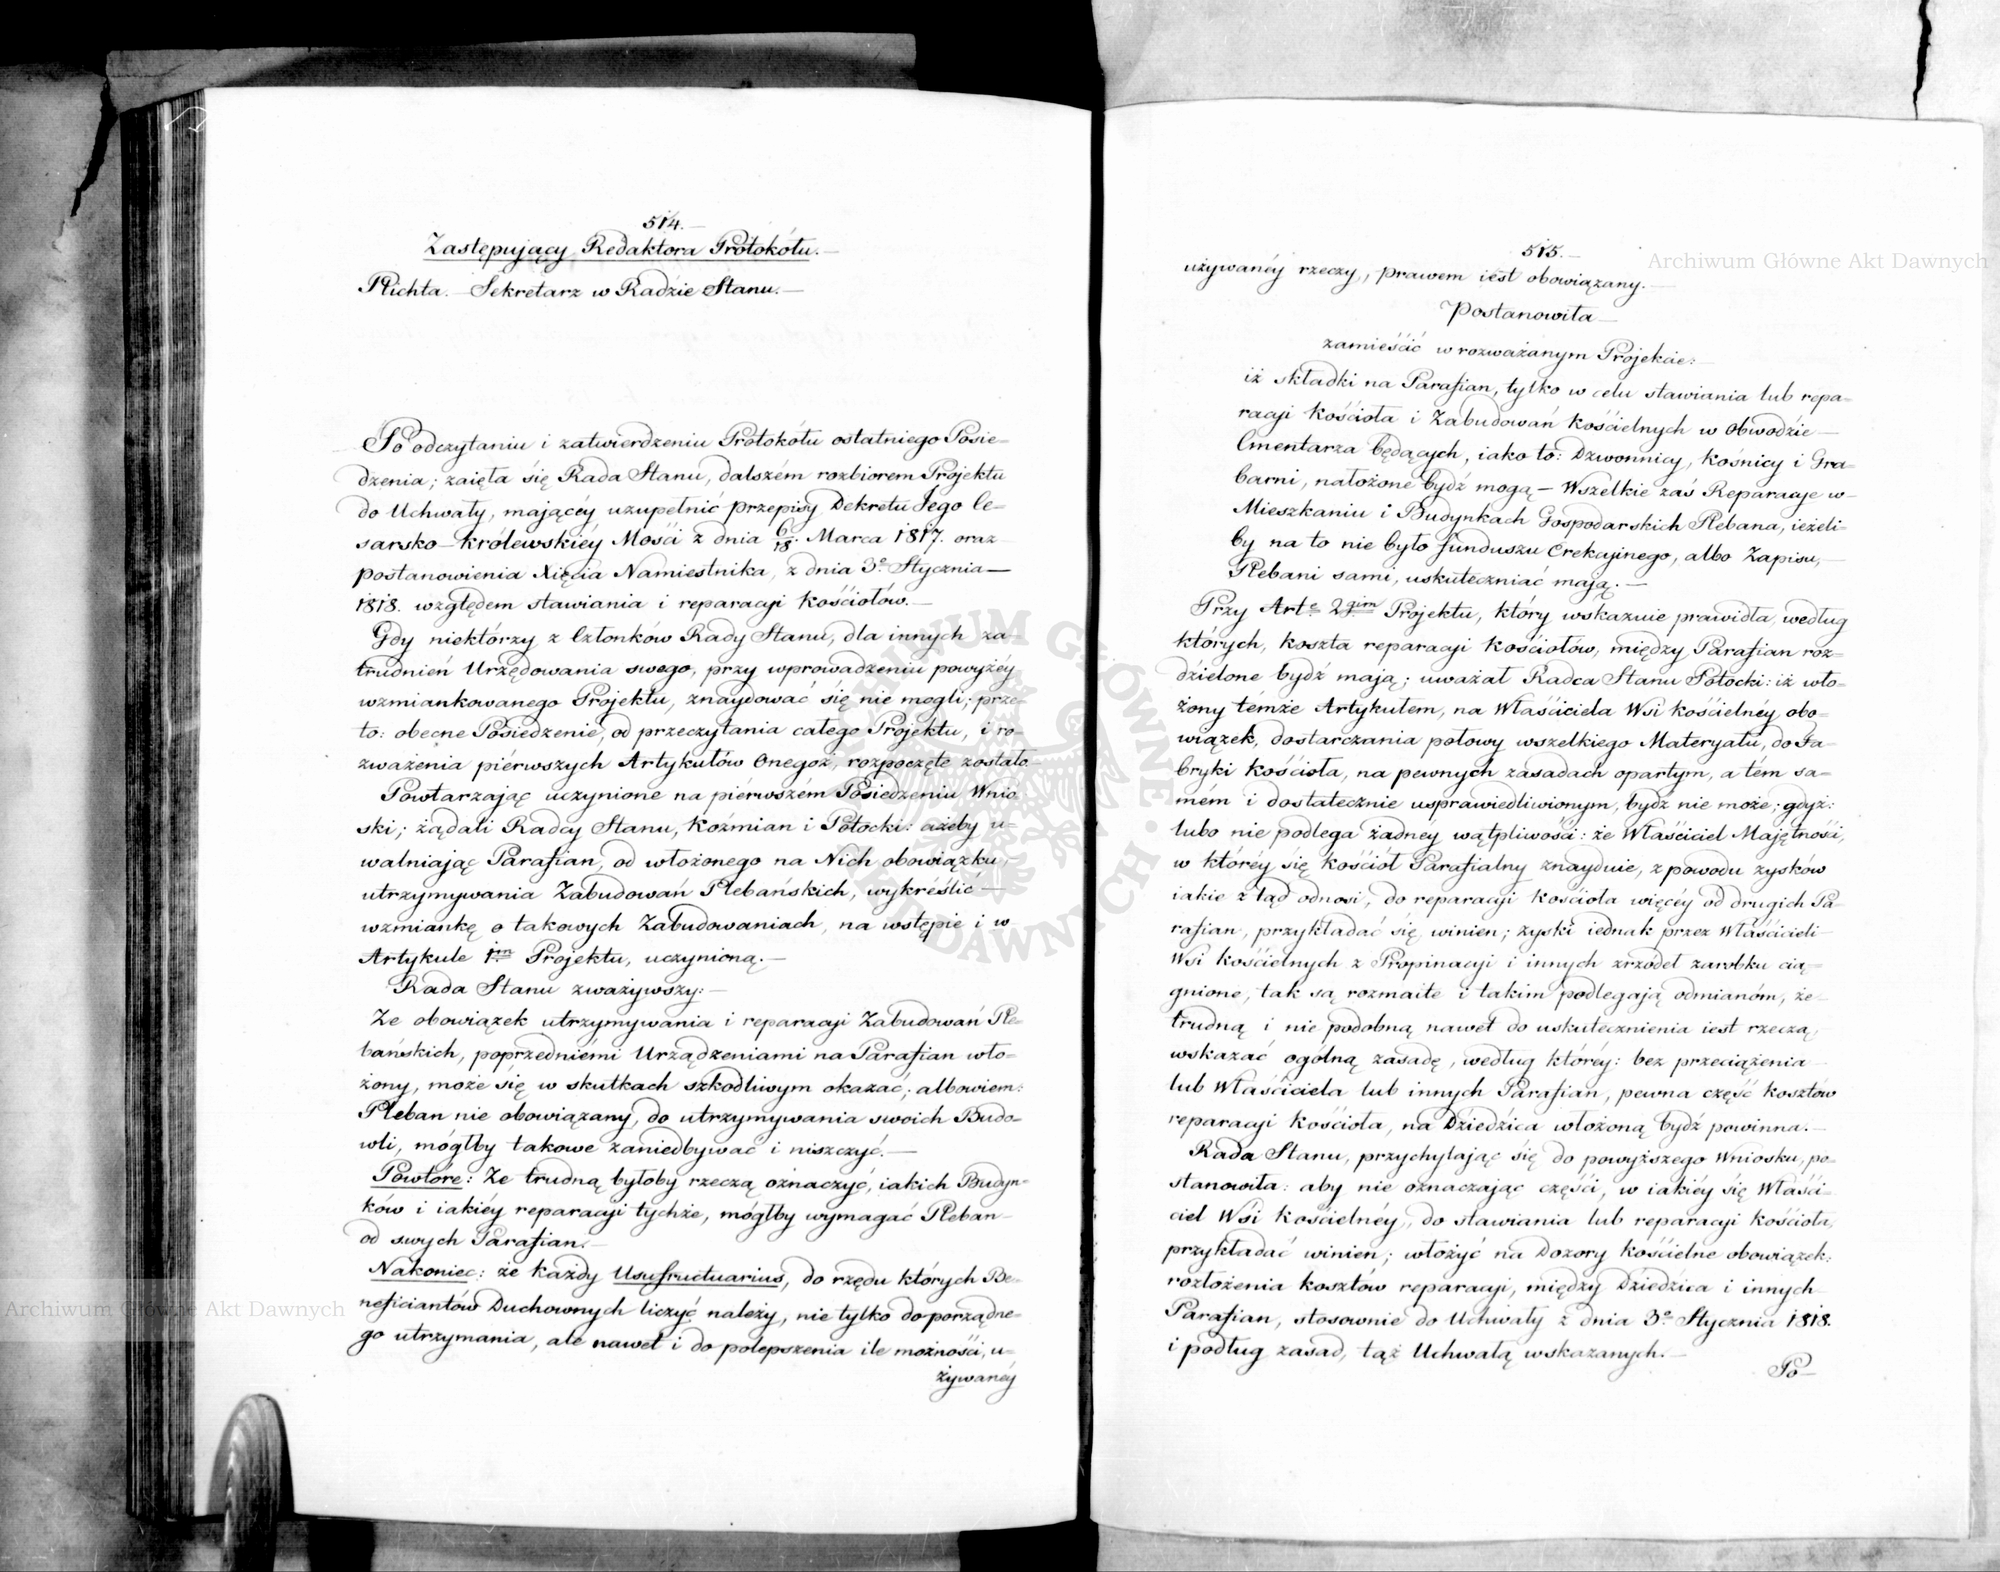 514.
Zastępujący Redaktora Protokółu.—
Plichta. — Sekretarz w Radzie Stanu.—
Po odczytaniu i zatwierdzeniu Protokółu ostatniego Posie-
dzenia; zaięła się Rada Stanu, dalszém rozbiorem Projektu
do Uchwały, maiącéy uzupełnić przepisy Dekretu Jego Ce-
sarsko-królewskiéy Mości z dnia 6/18. Marca 1817. oraz
postanowienia Xięcia Namiestnika, z dnia 3º Stycznia—
1818. względem stawiania i reparacyi kościołów.—
Gdy niektórzy z Członków Rady Stanu, dla innych za-
trudnień Urzędowania swego, przy wprowadzeniu powyżéy
wzmiankowanego Projektu, znaydować się nie mogli; prze-
to: obecne Posiedzenie, od przeczytania całego Projektu, i ro-
zważenia piérwszych Artykułów Onegoż, rozpoczęte zostało—
Powtarzając uczynione na piérwszém Posiedzeniu Wnio-
ski; żądali Radcy Stanu, Koźmian i Potocki: ażeby u-
walniając Parafian, od włożonego na Nich obowiązku—
utrzymywania Zabudowań Plebańskich, wykréślić—
wzmiankę o takowych Zabudowaniach, na wstępie i w
Artykule 1m Projektu, uczynioną.—
Rada Stanu zważywszy:—
Że obowiązek utrzymywania i reparacyi Zabudowań Ple-
bańskich, poprzedniémi Urządzeniami na Parafian wło-
żony, może się w skutkach szkodliwym okazać; albowiem:
Pleban nie obowiązany, do utrzymywania swoich Budo-
wli, mógłby takowe zaniedbywać i niszczyć.—
Powtóre: Że trudną byłoby rzeczą oznaczyć, iakich Budyn-
ków i iakiéy reparacyi tychże, mógłby wymagać Pleban—
od swych Parafian.—
Nakoniec: że każdy Usufructuarius, do rzędu których Be-
neficiantów Duchownych liczyć należy, nie tylko do porządne-
go utrzymania, ale nawet i do polepszenia ile możności, u-
żywanéy
515.—
używanéy rzeczy, prawem iest obowiązany.—
Postanowiła—
zamieścić w rozważanym Projekcie:—
iż składki na Parafian, tylko w celu stawiania lub repa-
racyi kościoła i Zabudowań kościelnych w Obwodzie—
Cmentarza będących, iako to: Dzwonnicy, Kośnicy i Gra-
barni, nałożone bydź mogą— Wszelkie zaś Reparacye w—
Mieszkaniu i Budynkach Gospodarskich Plebana, ieżeli-
by na to nie było funduszu erekcyinego, albo Zapisu,—
Plebani sami, uskuteczniać mają.—
Przy Arte 2gim Projektu, który wskazuie prawidła, według
których, koszta reparacyi kościołów, między Parafian roz-
dzielone bydź mają; uważał Radca Stanu Potocki: iż wło-
żony témże Artykułem, na Właściciela Wsi kościelnéy obo-
wiązek, dostarczania połowy wszelkiego Materyału, do Fa-
bryki kościoła, na pewnych zasadach opartym, a tém sa-
mém i dostatecznie usprawiedliwionym, bydź nie może; gdyż:
lubo nie podlega żadney wątpliwości: że Właściciel Majętności,
w któréy się kościół Parafialny znayduie, z powodu zysków
iakie z tąd odnosi, do reparacyi kościoła więcéy od drugich Pa-
rafian, przykładać się winien; zyski iednak przez Właścicieli—
Wsi kościelnych z Propinacyi i innych zrzódeł zarobku cią-
gnione, tak są rozmaite i takim podlegają odmianóm, że—
trudną i nie podobną nawet do uskutecznienia iest rzeczą,
wskazać ogólną zasadę, według któréy: bez przeciążenia—
lub Właściciela lub innych Parafian, pewna część kosztów
reparacyi kościoła, na Dziedzica włożoną bydź powinna.—
Rada Stanu, przychylając się do powyższego Wniosku, po-
stanowiła: aby nie oznaczając części, w iakiéy się Właści-
ciel Wsi kościelnéy, do stawiania lub reparacyi kościoła,
przykładać winien; włożyć na Dozory kościelne obowiązek:
rozłożenia kosztów reparacyi, między Dziedzica i innych—
Parafian, stosownie do Uchwały z dnia 3º Stycznia 1818.
i podług zasad, tąż Uchwałą wskazanych.—
Po—
Archiwum Główne Akt Dawnych
Archiwum Główne Akt Dawnych
ARCHIWUM GŁÓWNE · AKT DAWNYCH ·